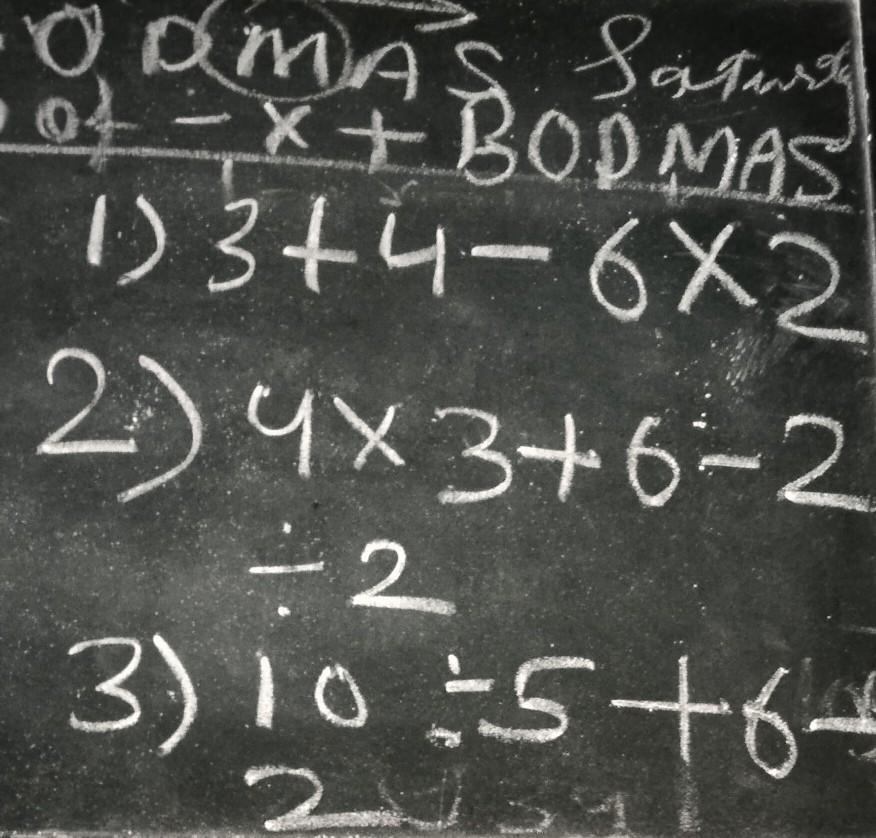 ODMAS
of - x + BODMAS
1) 3+4-6×2
2) 4×3+6-2
÷2
3) 10÷5+6-
2